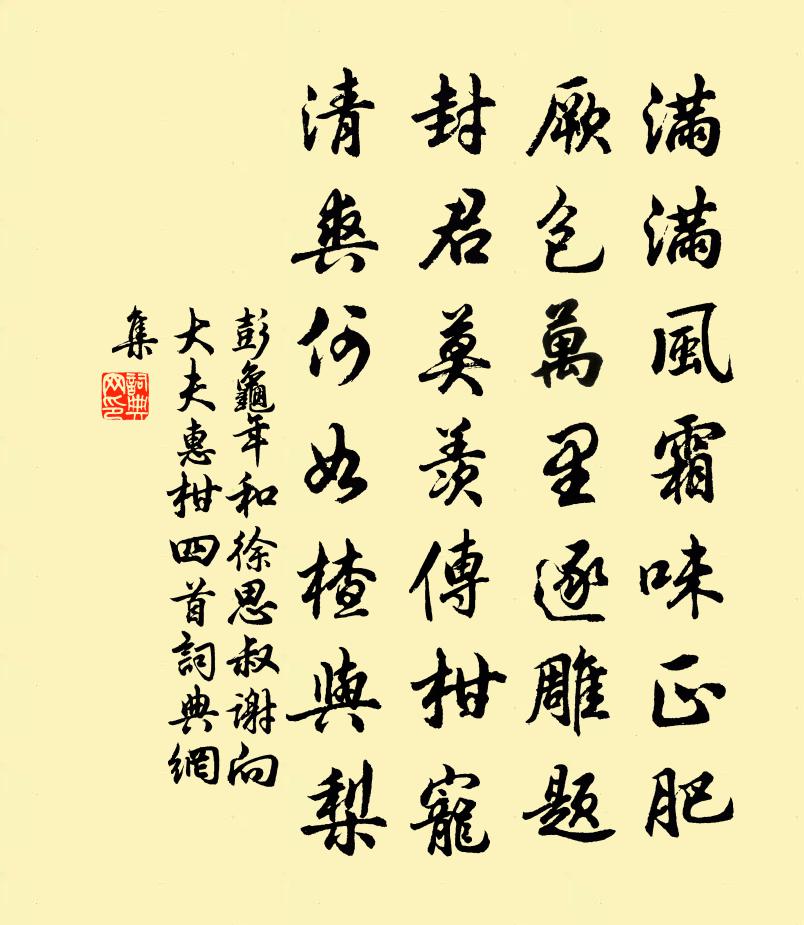 滿滿風霜味正肥
厥包萬里逐雕題
封君莫羨傳柑寵
清爽何如楂與梨
彭龜年和徐思叔謝向
大夫惠柑四首詞典網
集
詞典網印